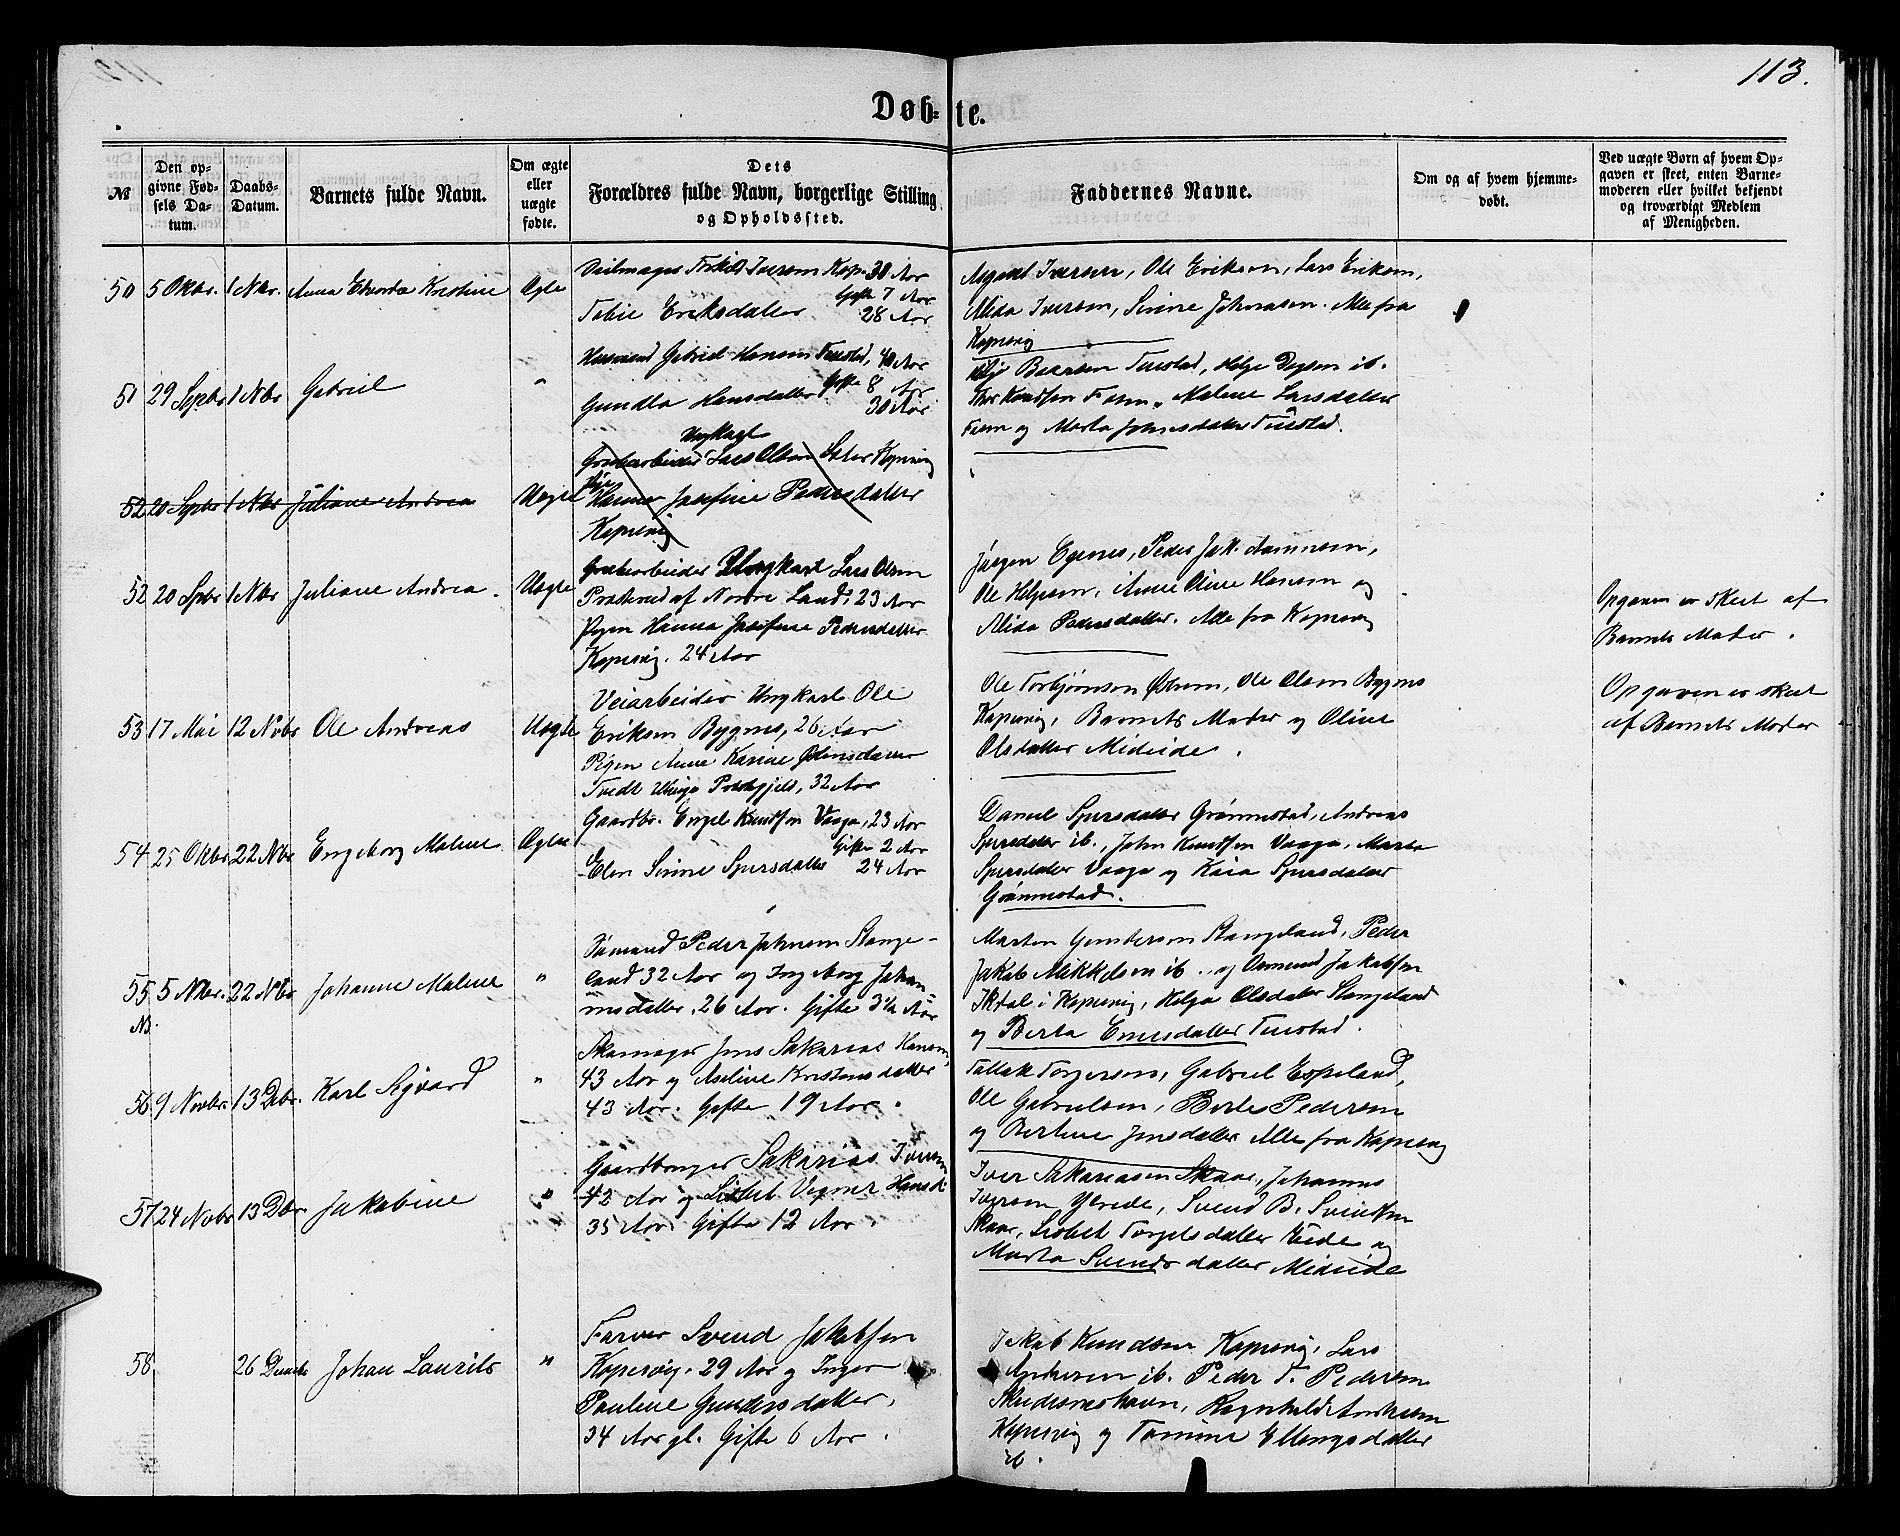 113.
Døb-te.
№
Den opgivne Fødsels Datum.
Daabs-Datum.
Barnets fulde Navn.
Om ægte eller uægte fødte.
Dets Forældres fulde Navn, borgerlige Stilling og Opholdssted.
Faddernes Navne.
Om og af hvem hjemmedøbt.
Ved uægte Børn af hvem Opgaven er skeet, enten Barnemoderen eller hvilket bekjendt og troværdigt Medlem af Menigheden.
50 5 Oktbr. 1 Nbr. Anna Kristine Ægte
Iversen Kop. 30 Aar
Gifte 7 Aar
Eriksdatter 28 Aar
Iversen, Ole Eriksen, Lars Eriksen,
Alida Iversen, Sirine Johnasen. Alle fra
Kopervig
51 29 Septbr 1 Nbr Gabriel "
Husmand Gabriel Hansen 40 Aar
Gifte 8 Aar
Gundla Hansdatter 30 Aar
Helge ib.
Knudsen Malene Larsdatter
og Marta
52 20 Septbr 1 Nbr Juliane Andrea Uægte
Ungkarl
Grubearbeider Lars Olsen Kopervig
Hanna Josefine Pedersdatter
Kopervig
52 20 Sptbr 1 Nbr Juliane Andrea. Uægte
Grubearbeider Ungkarl Lars Olsen
af Nordre Land, 23 Aar
Pigen Hanna Josefine Pedersdatter
Kopervig. 24 Aar
Jørgen Eienes, Peder Jak.
Ole Helgesen, Anne Oline Hansen og
Alida Pedersdatter. Alle fra Kopervig
Opgaven er skeet af
Barnets Moder.
53 17 Mai 12 Novbr Ole Andreas Uægte
Veiarbeider Ungkarl Ole
Eriksen Bygnes, 26 Aar
Pigen Anne Karine
Tvedt Præstegjeld, 32 Aar
Ole Torbjørnsen Østrem, Ole Olsen Bygnes
Kopervig, Barnets Moder og Oline
Olsdatter Midtide.
Opgaven er skeet
af Barnets Moder
54 25 Oktbr 22 Nbr Engeborg Malene Ægte
Gaardbr. Engel Knudsen Vaaga, 23 Aar
Gifte 2 Aar
Elen Sirine Sjursdatter 24 Aar
Daniel Sjursdatter Grønnestad, Andreas
Sjursdatter ib., John Knudsen Vaaga, Marta
Sjursdatter Vaaga og Kaia Sjursdatter
Grønnestad.
55 5 Nbr. 22 Nbr Johanne Malene "
Nb.
Sømand Peder Johnsen Stange-
land 32 Aar og Ingeborg Johan-
nesdatter, 26 Aar. Gifte 3½ Aar
Marton Gundersen Stangeland, Peder
Jakob Mikkelsen ib. og Osmund Jakobsen
i Kopervig, Helga Olsdatter Stangeland
og Berta
56 9 Novbr 13 Dbr. Karl Sigvard "
Skomager Jens Sakarias Hansen,
43 Aar og Aseline Kristensdatter
43 Aar. Gifte 19 Aar.
Tallak Torgersen, Gabriel Espeland,
Ole Gabrielsen, Berte Pedersen
og Bertine Jensdatter Alle fra Kopervig
57 24 Novbr 13 Dbr Jakobine "
Gaardbruger Sakarias Iversen
42 Aar og Lisbet Hansd.
35 Aar. Gifte 12 Aar.
Iver Sakariasen Skaar, Johannes
Iversen Svend B. Svendsen
Skaar, Lisbet Torgelsdatter og
Marta Svendsdatter Midtide
58 26 Johan Laurits "
Farver Svend Jakobsen
Kopervig. 29 Aar og Inger
Pauline Gundersdatter,
34 Aar gl. Gifte 6 Aar.
Jakob Knudsen Kopervig, Lars
Andersen ib. Peder T. Pedersen
Skudesneshavn, Ragnhild
Kopervig og Tomine Ellingsdatter
ib.